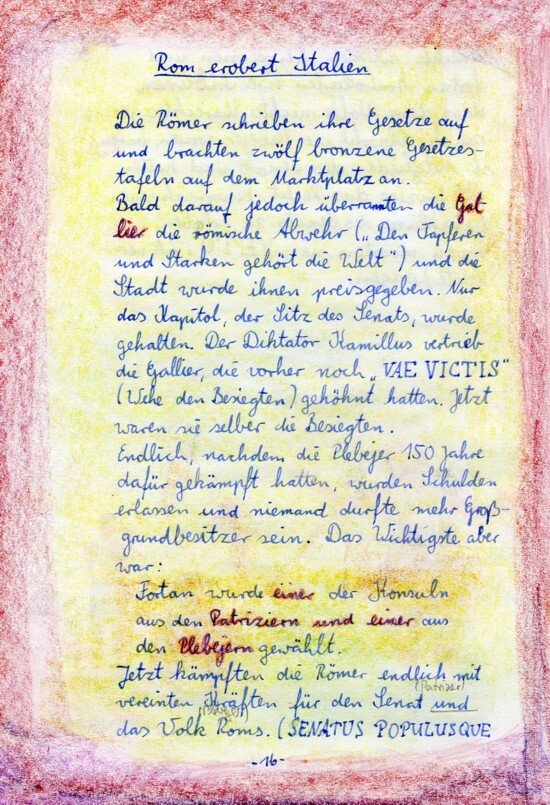 Rom erobert Italien
Die Römer schrieben ihre Gesetze auf
und brachten zwölf bronzene Gesetzes-
tafeln auf dem Marktplatz an.
Bald darauf jedoch überrannten die Gal
lier die römische Abwehr („Den Tapferen
und Starken gehört die Welt") und die
Stadt wurde ihnen preisgegeben. Nur
das Kapitol, der Sitz des Senats, wurde
gehalten. Der Diktator Kamillus vertrieb
die Gallier, die vorher noch „VAE VICTIS"
(Wehe den Besiegten) gehöhnt hatten. Jetzt
waren sie selber die Besiegten.
Endlich, nachdem die Plebejer 150 Jahre
dafür gekämpft hatten, wurden Schulden
erlassen und niemand durfte mehr Groß-
grundbesitzer sein. Das Wichtigste aber
war:
Fortan wurde einer der Konsuln
aus den Patriziern und einer aus
den Plebejern gewählt.
Jetzt kämpften die Römer endlich mit
(Patrizier)
vereinten Kräften für den Senat und
(Plebejer)
das Volk Roms. (SENATUS POPULUSQUE
-16-